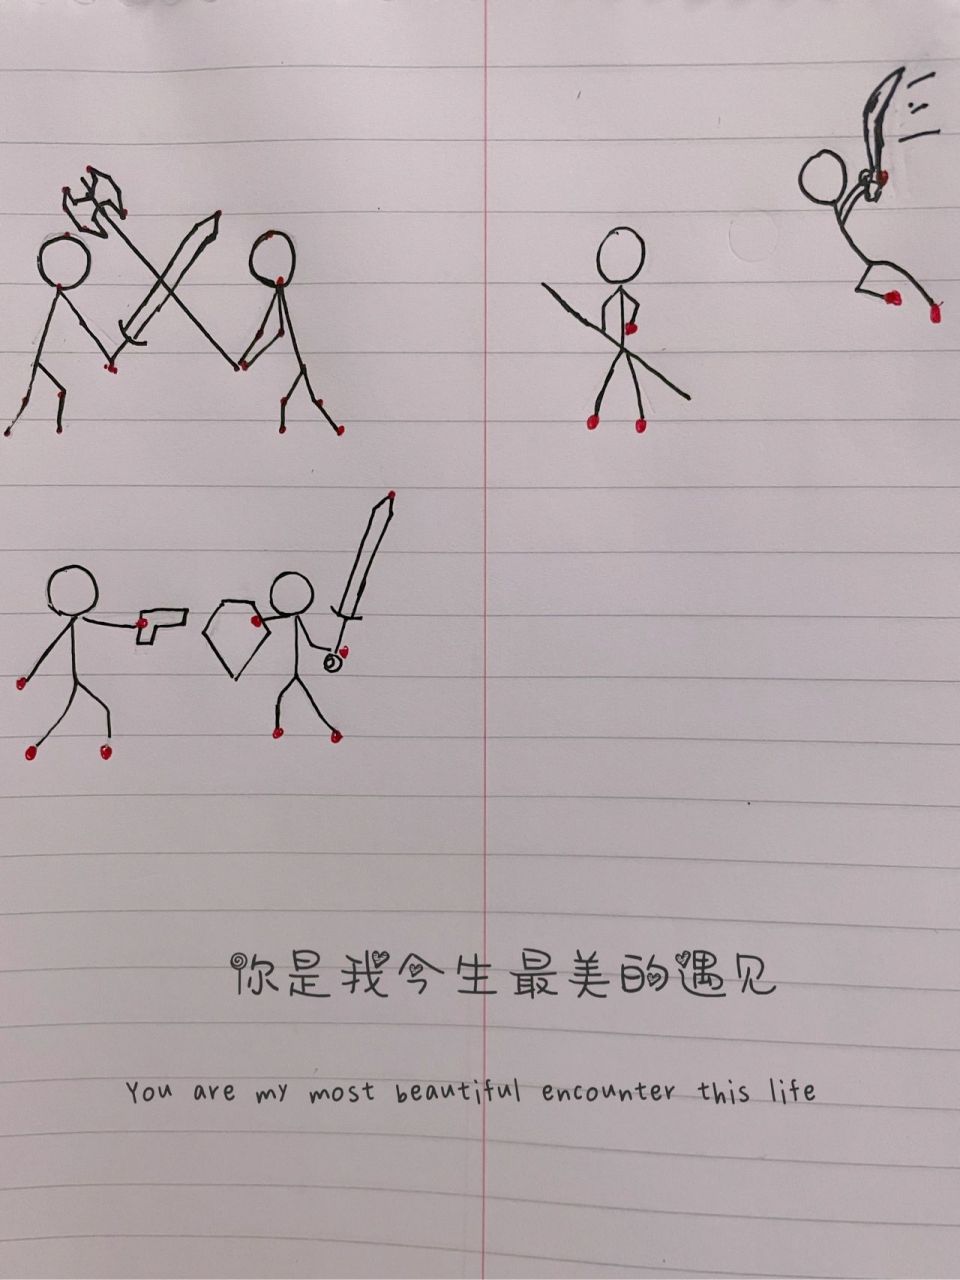 你是我今生最美的遇见
You are my most beautiful encounter this life